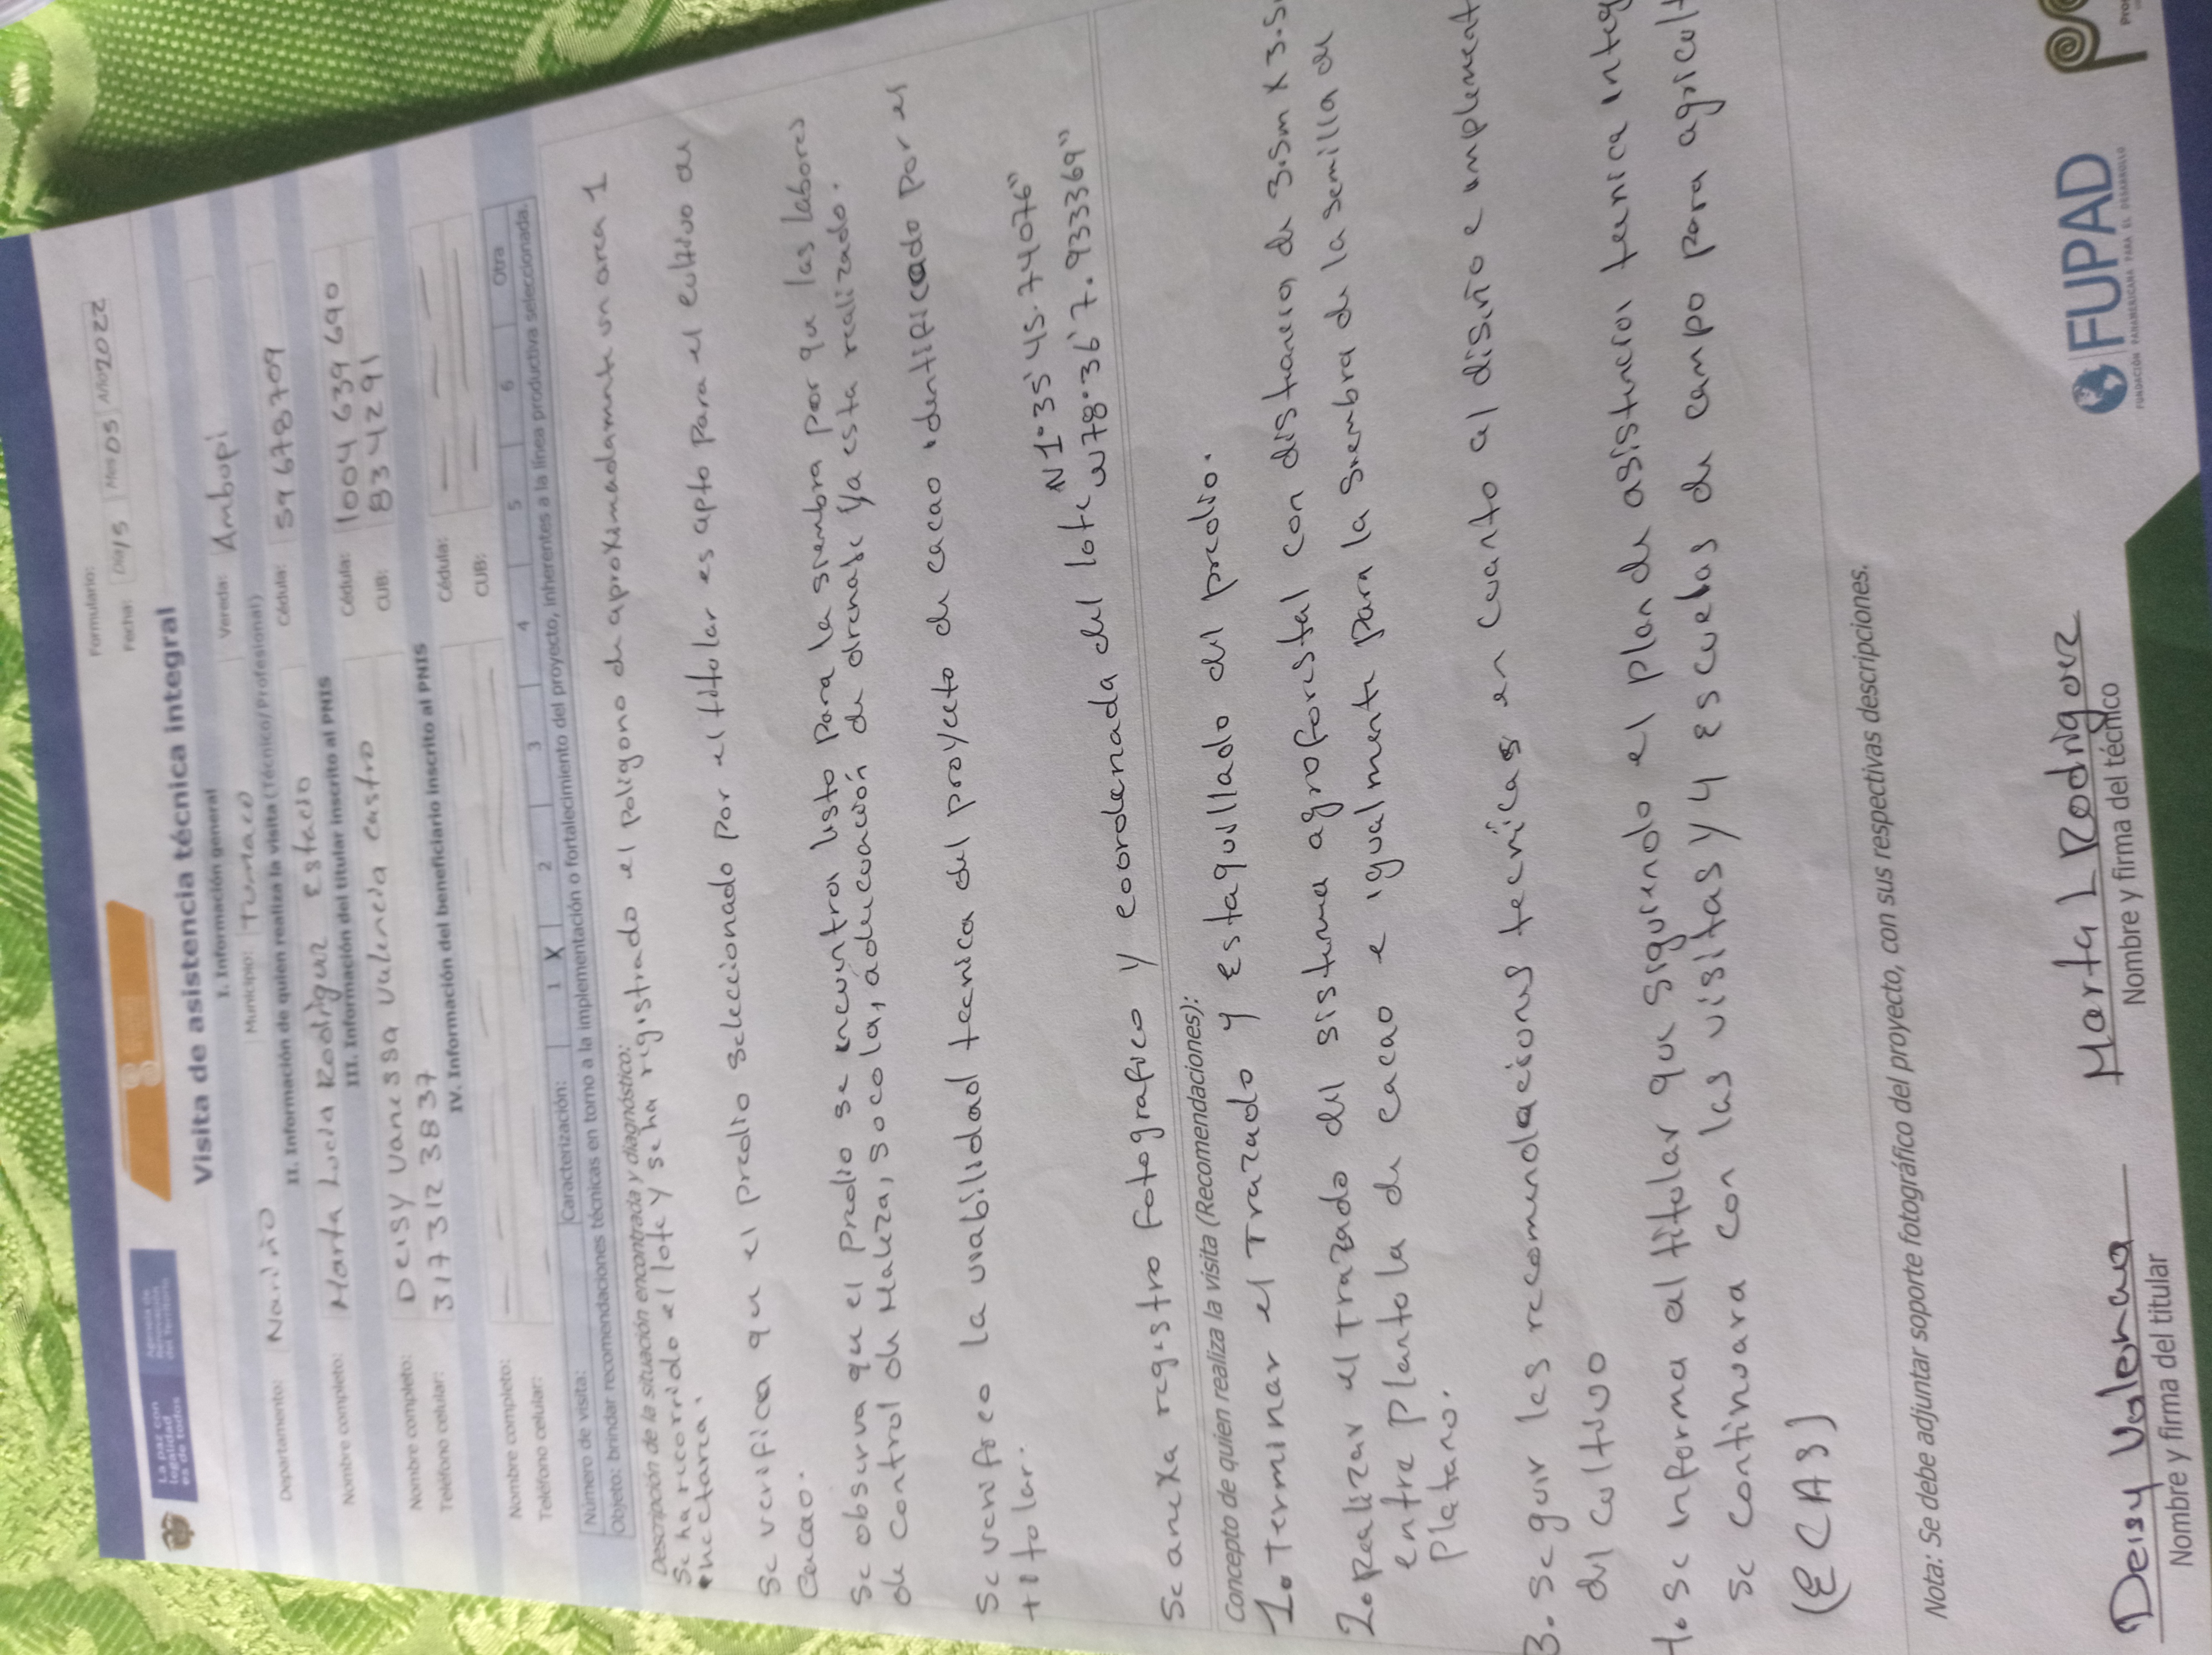 La paz con
legalidad
es de todos
Agencia de
Renovación
del Territorio
Formulario:
Fecha: Día 5 Mes 05 Año 2022
Visita de asistencia técnica integral
I. Información general
Departamento: Nariño Municipio: Tumaco Vereda: Ambupi
II. Información de quien realiza la visita (Técnico/Profesional)
Nombre completo: Marta Lucia Rodriguez Estacio Cédula: 59678709
III. Información del titular inscrito al PNIS
Nombre completo: Deisy Vanessa Valencia Castro Cédula: 1004 639 690
Teléfono celular: 317 312 3837 CUB: 834291
IV. Información del beneficiario inscrito al PNIS
Nombre completo: Cédula:
Teléfono celular: CUB:
Número de visita: Caracterización: 1 X 2 3 4 5 6 Otra
Objeto: brindar recomendaciones técnicas en torno a la implementación o fortalecimiento del proyecto, inherentes a la línea productiva seleccionada.
Descripción de la situación encontrada y diagnóstico:
Se ha recorrido el lote y se ha registrado el poligono de aproximadamente un area 1
hectarea.
Se verifica que el predio seleccionado por el titular es apto para el cultivo de
Cacao.
Se observa que el predio se encuentra listo para la siembra por que las labores
de control de Maleza, socola, adecuación de drenaje ya esta realizado.
Se verifico la viabilidad tecnica del proyecto de cacao identificado por el
titular.
Se anexa registro fotografico y coordenada del lote N1°35'45.74076"
W78°36'7.933369"
Concepto de quien realiza la visita (Recomendaciones):
1. Terminar el Trazado y Estaquillado del predio.
2. Realizar el trazado del sistema agroforestal con distancia de 3.5m x 3.5
entre plantola de cacao e igualmente para la siembra de la semilla de
platano.
3. Seguir las recomendaciones tecnicas en cuanto al diseño e implement
del cultivo
4. Se informa al titular que siguiendo el plan de asistencia tecnica integ
se continuara con las visitas y 4 escuelas de campo para agricult
(ECAS)
Nota: Se debe adjuntar soporte fotográfico del proyecto, con sus respectivas descripciones.
Deisy Valencia
Nombre y firma del titular
Marta L Rodriguez
Nombre y firma del técnico
FUPAD
FUNDACIÓN PANAMERICANA PARA EL DESARROLLO